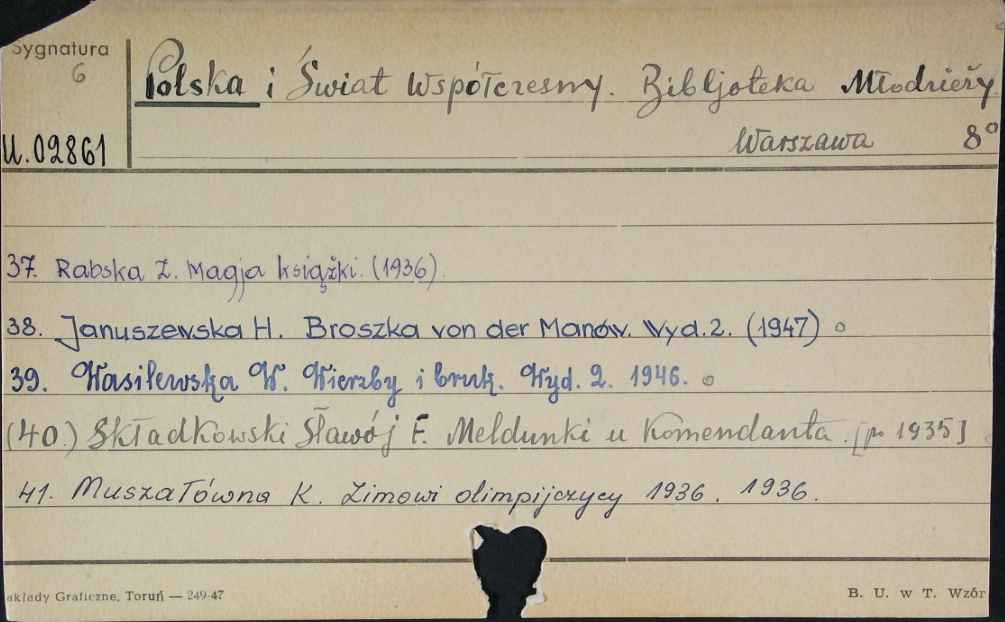 Sygnatura
6
Polska i Świat Współczesny. Bibljoteka Młodzieży.
U.02861
Warszawa 8°
37. Rabska Z. Magja książki. (1936)
38. Januszewska H. Broszka von der Manów. Wyd. 2. (1947) o
39. Wasilewska W. Wierzby i bruk. Wyd. 2. 1946. o
(40.) Składkowski Sławój F. Meldunki u Komendanta. [po 1935]
41. Muszałówna K. Zimowi olimpijczycy 1936. 1936.
akłady Graficzne, Toruń — 249-47
B. U. w T. Wzór